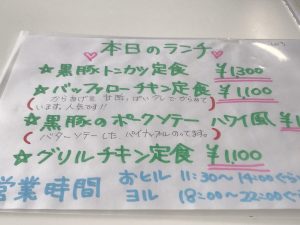 本日のランチ
☆黒豚トンカツ定食 ¥1300
☆バッファローチキン定食 ¥1,100
からあげを 甘酸っぱいタレでからめて
います。人気です!!
☆黒豚のポークソテー ハワイ風 ¥1
バターソテーした、パイナップルのってます。
☆グリルチキン定食 ¥1,100
営業時間 おヒル 11:30〜14:00ぐら
ヨル 18:00〜22:00ぐ